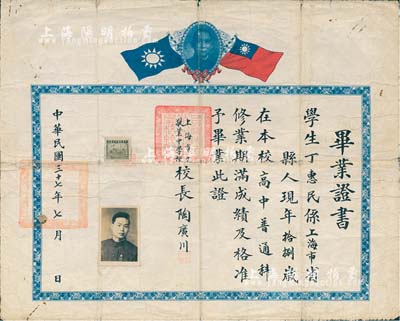 上海陽明拍賣
畢業證書
學生丁惠民係上海市省
縣人現年拾捌歲
在本校高中普通科
修業期滿成績及格准
予畢業此證
上海市
職業中學校
校長陶廣川
中華民國三十七年七月 日
上海陽明拍賣